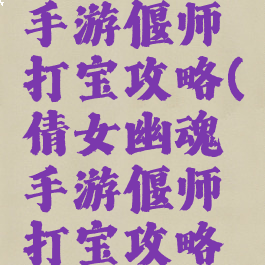 手游偃师
打宝攻略(
倩女幽魂
手游偃师
打宝攻略